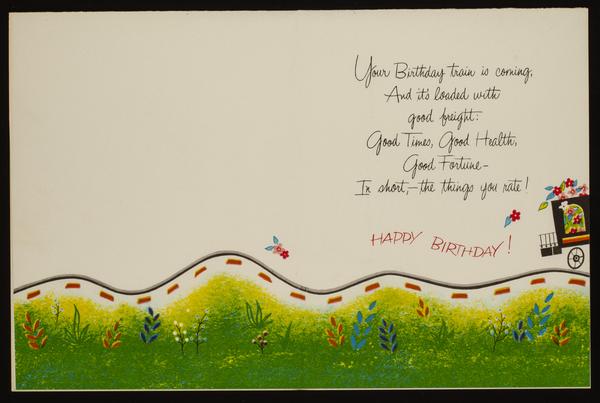 Your Birthday train is coming,
And it's loaded with
good freight:
Good Times, Good Health,
Good Fortune-
In short,-the things you rate!
HAPPY BIRTHDAY!